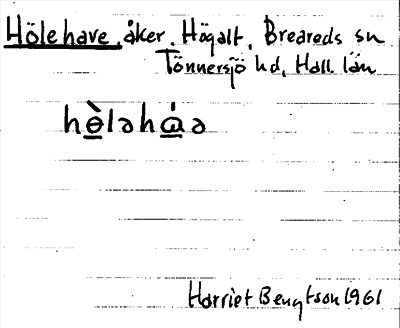 Hölehave, åker. Högalt, Breareds sn
Tönnersjö hd, Hall. län
hè̱ləhά̱ə
Harriet Bengtson 1961